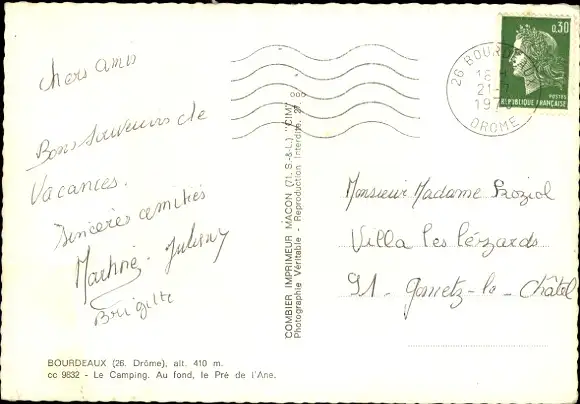 Chers amis
Bons souvenirs de
Vacances.
Sincères amitiés
Martine.
Brigitte
BOURDEAUX (26. Drôme), alt. 410 m.
cc 9832 - Le Camping. Au fond, le Pré de l'Ane.
COMBIER IMPRIMEUR MACON (71. S.-&-L.) "CIM"
Photographie Véritable - Reproduction Interdite.
0,30
POSTES
REPUBLIQUE FRANÇAISE
26 BOURDEAUX
18 H
21-
DROME
Monsieur Madame
Villa les lézards
91 - Gometz - le - Châtel